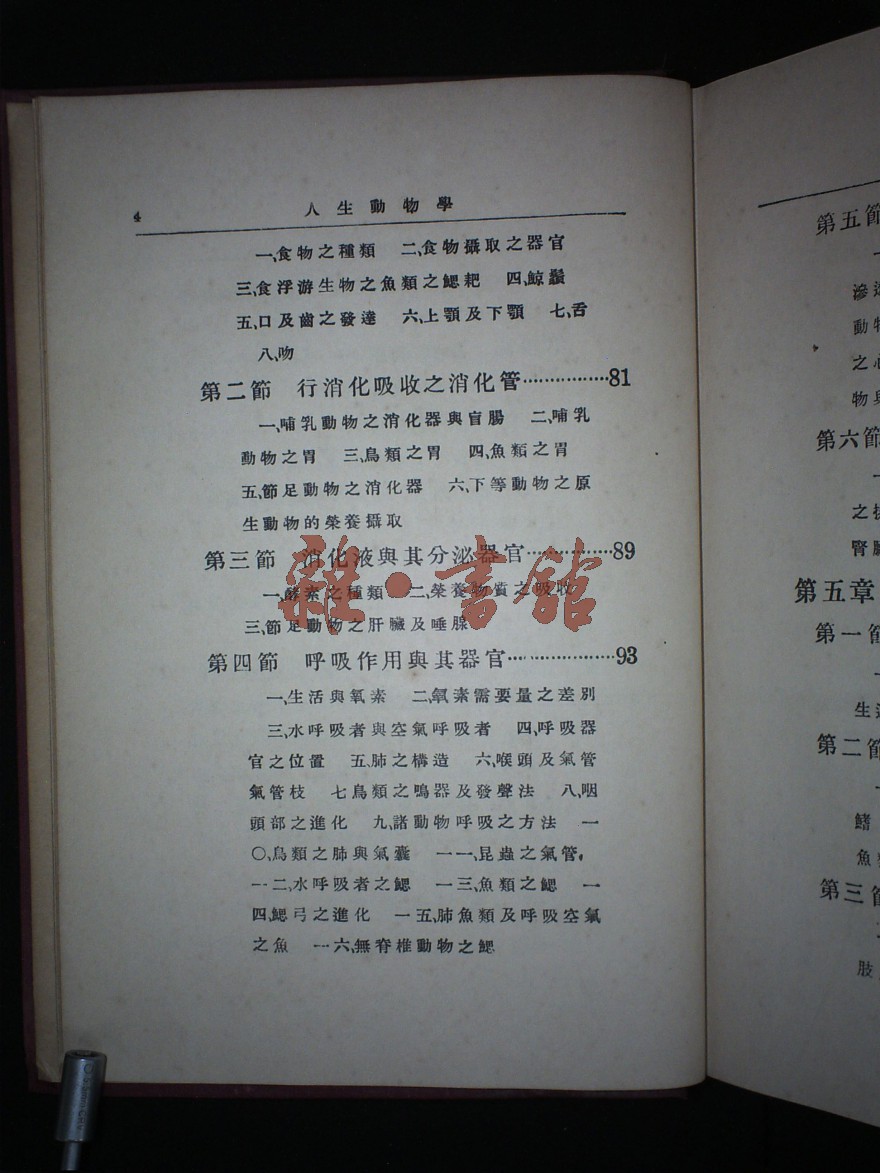 4 人生動物學
一、食物之種類 二、食物攝取之器官
三、食浮游生物之魚類之鰓耙 四、鯨鬚
五、口及齒之發達 六、上顎及下顎 七、舌
八、吻
第二節 行消化吸收之消化管……………81
一、哺乳動物之消化器與盲腸 二、哺乳
動物之胃 三、鳥類之胃 四、魚類之胃
五、節足動物之消化器 六、下等動物之原
生動物的榮養攝取
第三節 消化液與其分泌器官……………89
一、酵素之種類 二、榮養物質之吸收
三、節足動物之肝臟及唾腺
第四節 呼吸作用與其器官………………93
一、生活與氧素 二、氧素需要量之差別
三、水呼吸者與空氣呼吸者 四、呼吸器
官之位置 五、肺之構造 六、喉頭及氣管
氣管枝 七、鳥類之鳴器及發聲法 八、咽
頭部之進化 九、諸動物呼吸之方法 一
〇、鳥類之肺與氣囊 一一、昆蟲之氣管、
一二、水呼吸者之鰓 一三、魚類之鰓 一
四、鰓弓之進化 一五、肺魚類及呼吸空氣
之魚 一六、無脊椎動物之鰓
雜·書館
第五節
一
滲透
動物
之心
物與
第六節
一
之排
腎臟
第五章
第一節
一
生
第二節
一
鰭
魚
第三節
肢